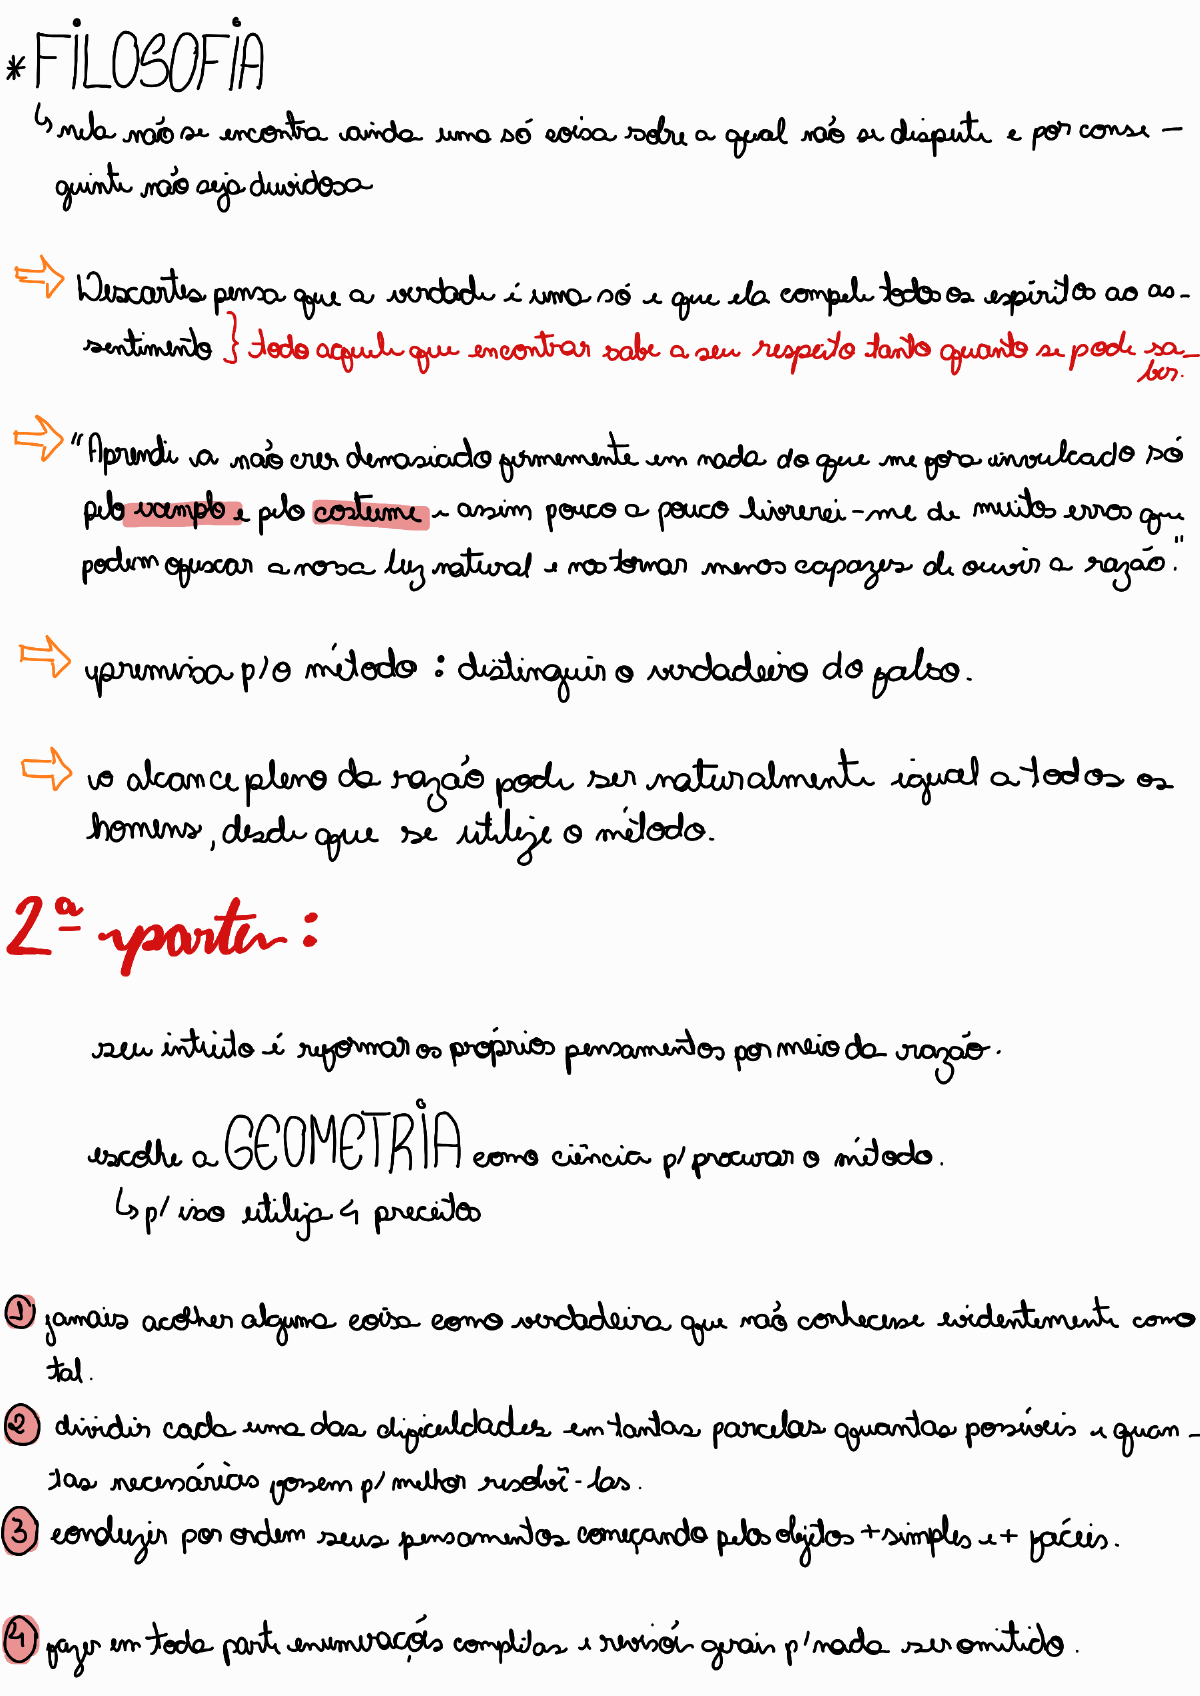 * FILOSOFIA
↳ nela não se encontra ainda uma só coisa sobre a qual não se dispute e por conse-
guinte não seja duvidosa
⇨ Descartes pensa que a verdade é uma só e que ela compele todos os espíritos ao as-
sentimento } todo aquele que encontrar sabe a seu respeito tanto quanto se pode sa-
ber.
⇨ "Aprendi a não crer demasiado firmemente em nada do que me fora inculcado só
pelo exemplo e pelo costume e assim pouco a pouco livrerei-me de muitos erros que
podem ofuscar a nossa luz natural e nos tornar menos capazes de ouvir a razão."
⇨ premissa p/ o método: distinguir o verdadeiro do falso.
⇨ o alcance pleno da razão pode ser naturalmente igual a todos os
homens, desde que se utilize o método.
2ª parte:
seu intuito é reformar os próprios pensamentos por meio da razão.
escolhe a GEOMETRIA como ciência p/ procurar o método.
↳ p/ isso utiliza 4 preceitos
1 jamais acolher alguma coisa como verdadeira que não conhecesse evidentemente como
tal.
2 dividir cada uma das dificuldades em tantas parcelas quantas possíveis e quan-
tas necessárias fossem p/ melhor resolvê-las.
3 conduzir por ordem seus pensamentos começando pelos objetos + simples e + fáceis.
4 fazer em toda parte enumerações completas e revisões gerais p/ nada ser omitido.